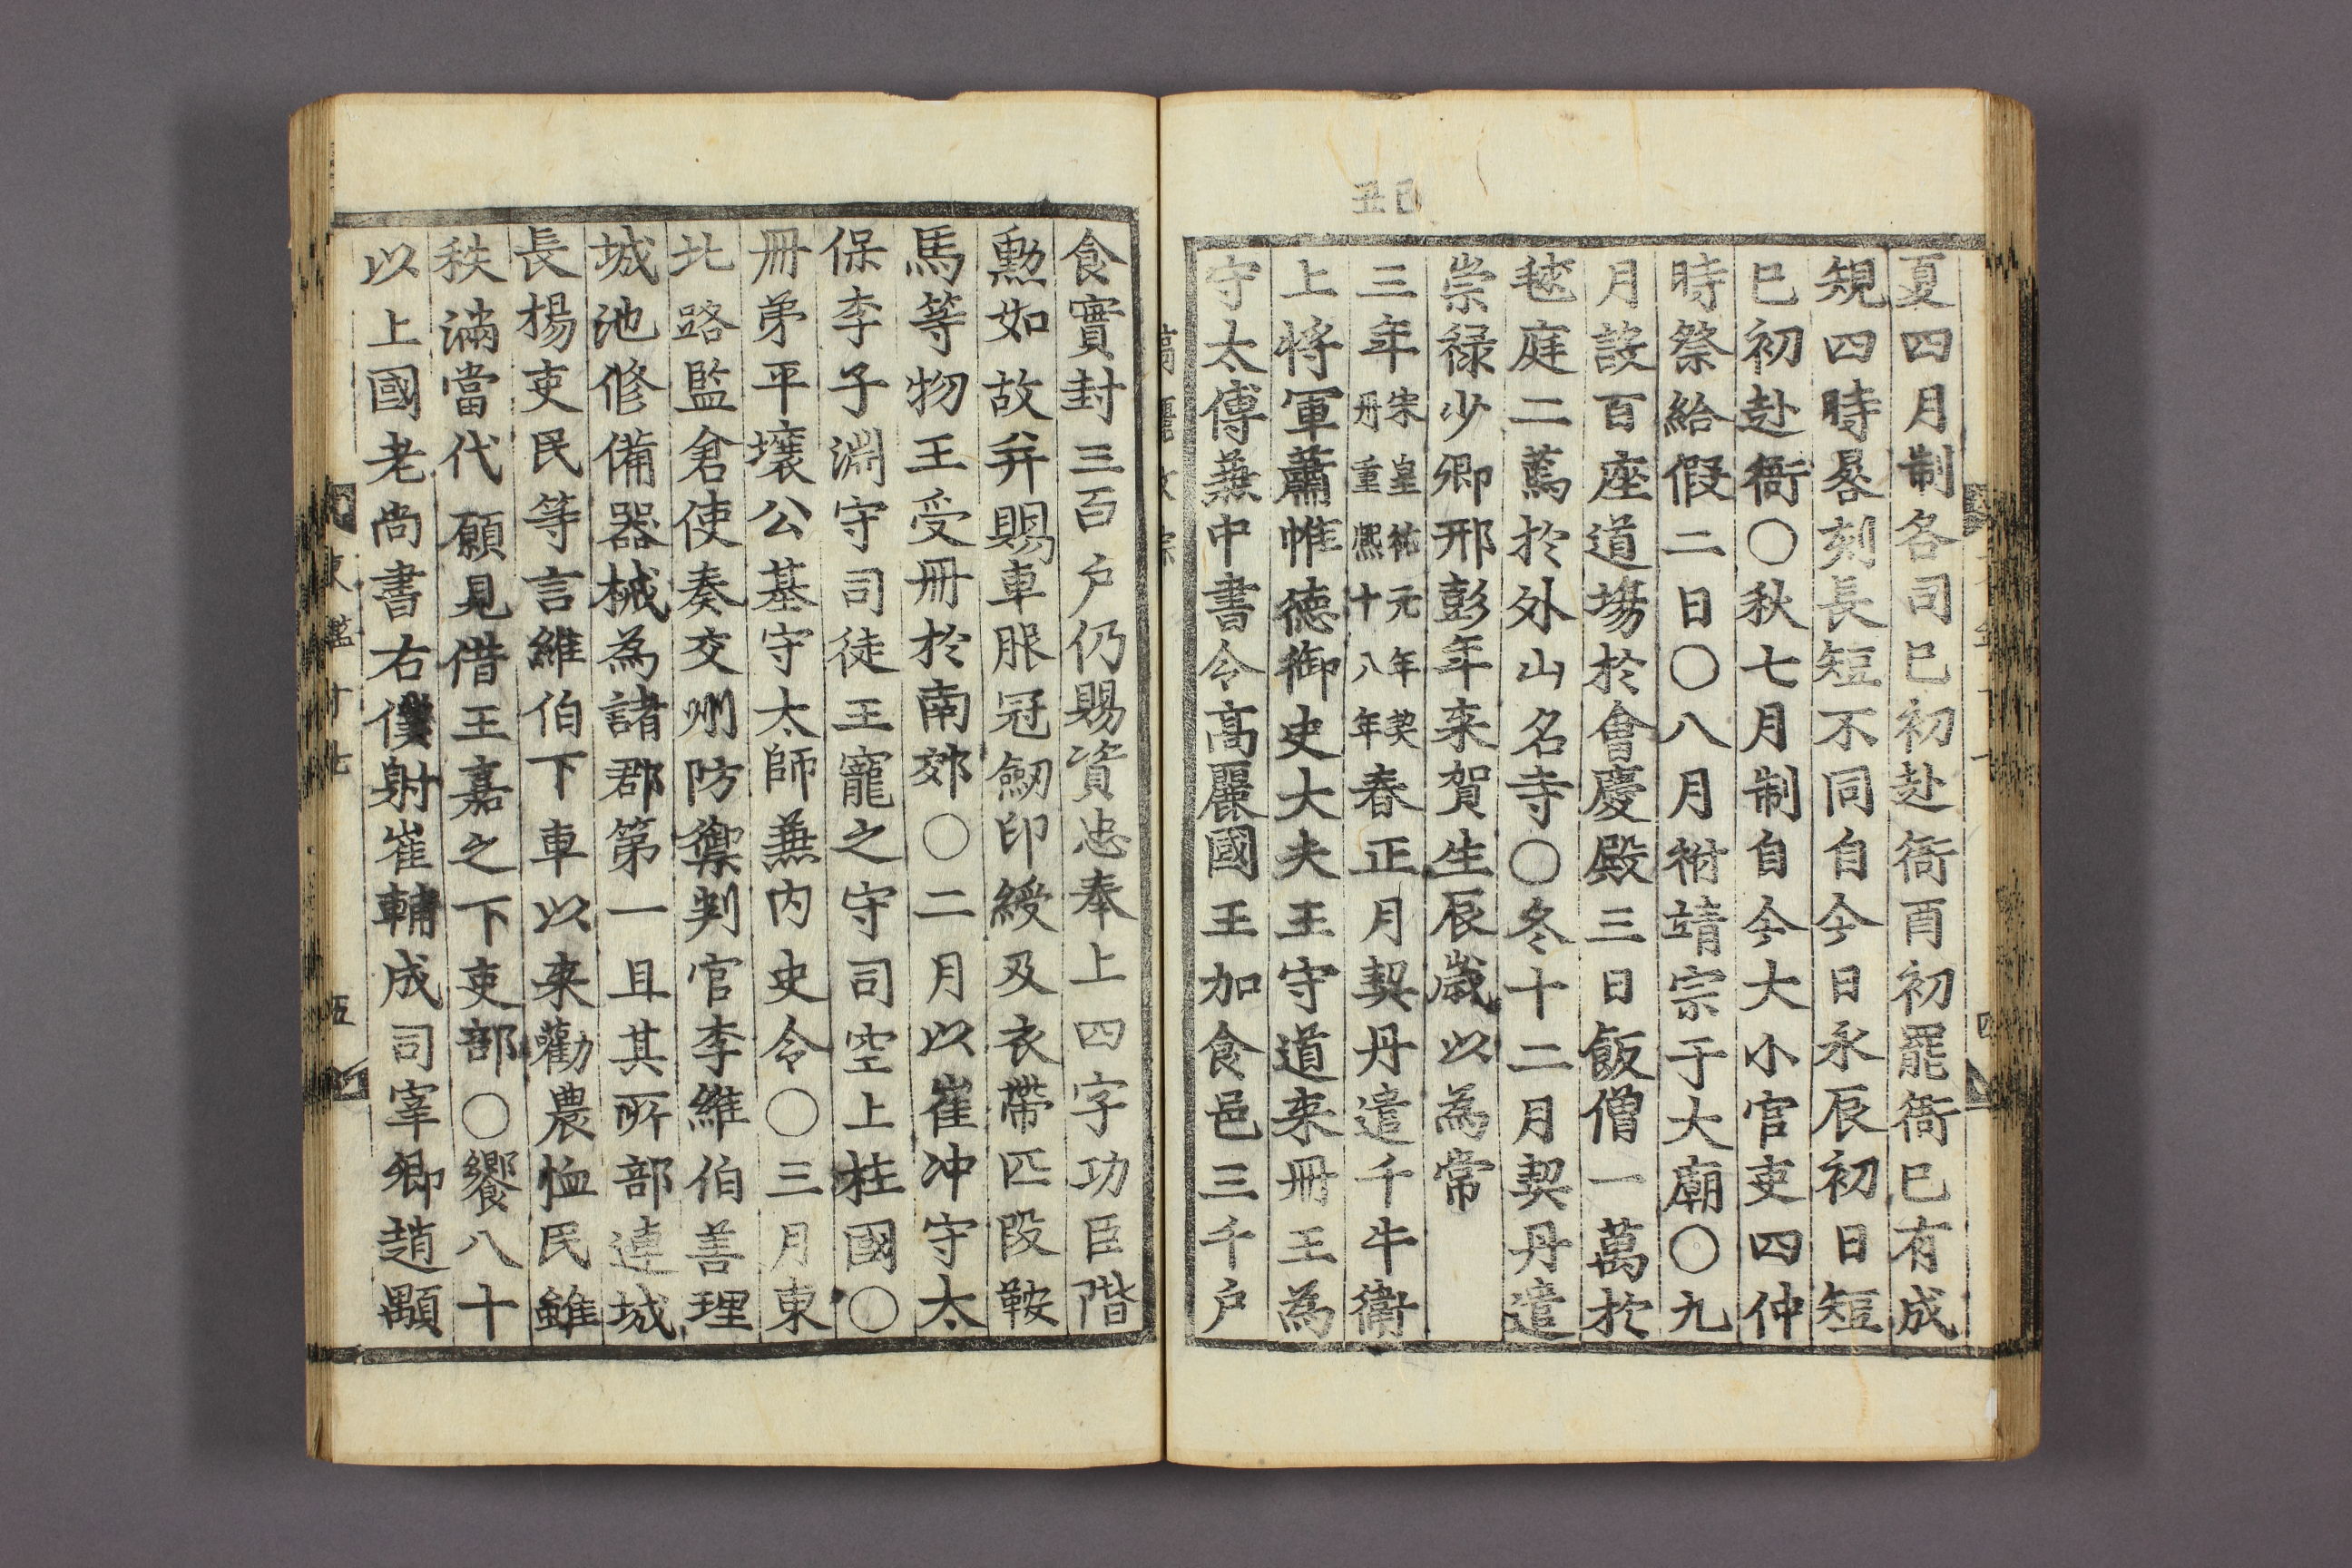 己丑
夏四月制各司巳初赴衙酉初罷衙已有成
規四時晷刻長短不同自今日永辰初日短
巳初赴衙○秋七月制自今大小官吏四仲
時祭給假二日○八月祔靖宗于大廟○九
月設百座道場於會慶殿三日飯僧一萬於
毬庭二萬於外山名寺○冬十二月契丹遣
崇祿少卿邢彭年来賀生辰歲以為常
三年宋皇祐元年契丹重熙十八年春正月契丹遣千牛衛
上將軍蕭惟德御史大夫王守道来冊王為
守太傅兼中書令高麗國王加食邑三千户
高麗文宗
食實封三百户仍賜資忠奉上四字功臣階
勲如故并賜車服冠劒印綬及衣帶匹段鞍
馬等物王受冊於南郊○二月以崔冲守太
保李子淵守司徒王寵之守司空上柱國○
冊弟平壤公基守太師兼内史令○三月東
北路監倉使奏交州防禦判官李維伯善理
城池修備器械為諸郡第一且其所部連城
長楊吏民等言維伯下車以来勸農恤民雖
秩滿當代願見借王嘉之下吏部○饗八十
以上國老尚書右僕射崔輔成司宰卿趙顒
東鑑十七
五